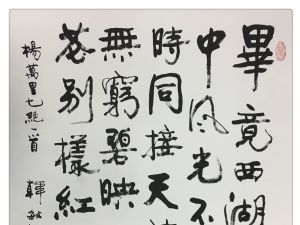 畢竟西湖
中风光不
時同接天
無窮碧映
花别樣紅
楊萬里七絶一首